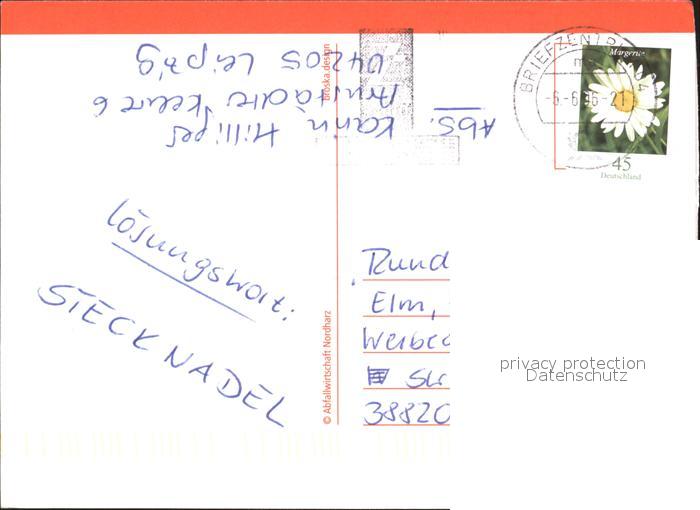 Abs. Karin Hilliges
04205 Leipzig
broska.design
BRIEFZENTR
Margerite
45
Deutschland
Lösungswort:
STECKNADEL
© Abfallwirtschaft Nordharz
Rund
Elm,
38820
privacy protection
Datenschutz